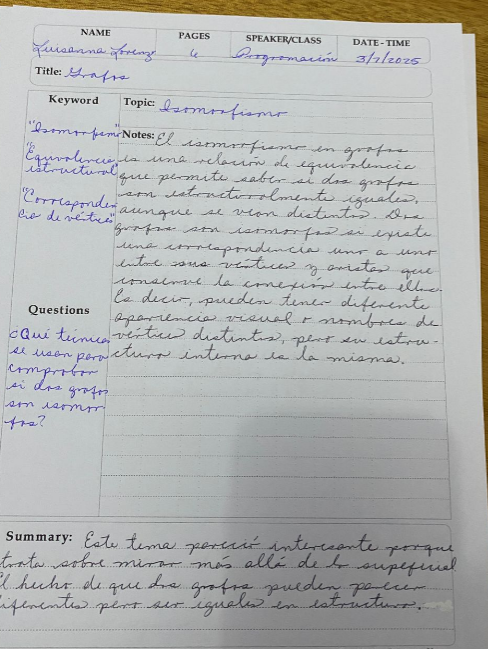 NAME PAGES SPEAKER/CLASS DATE - TIME
Luisanna Lorenzo 6 Programación 3/7/2025
Title: Grafos
Keyword
"Isomorfismo"
"Equivalencia
estructural"
"Corresponden
cia de vértice"
Questions
¿Qué técnicas
se usan para
comprobar
si dos grafos
son isomor
fos?
Topic: Isomorfismo
Notes: El isomorfismo en grafos
es una relación de equivalencia
que permite saber si dos grafos
son estructuralmente iguales,
aunque se vean distintos. Dos
grafos son isomorfos si existe
una correspondencia uno a uno
entre sus vértices y aristas que
conserve la conexión entre ellos.
Es decir, pueden tener diferente
apariencia visual o nombres de
vértices distintos, pero su estru-
ctura interna es la misma.
Summary: Este tema pareció interesante porque
trata sobre mirar más allá de lo supeficial
El hecho de que dos grafos pueden parecer
diferentes pero ser iguales en estructura.